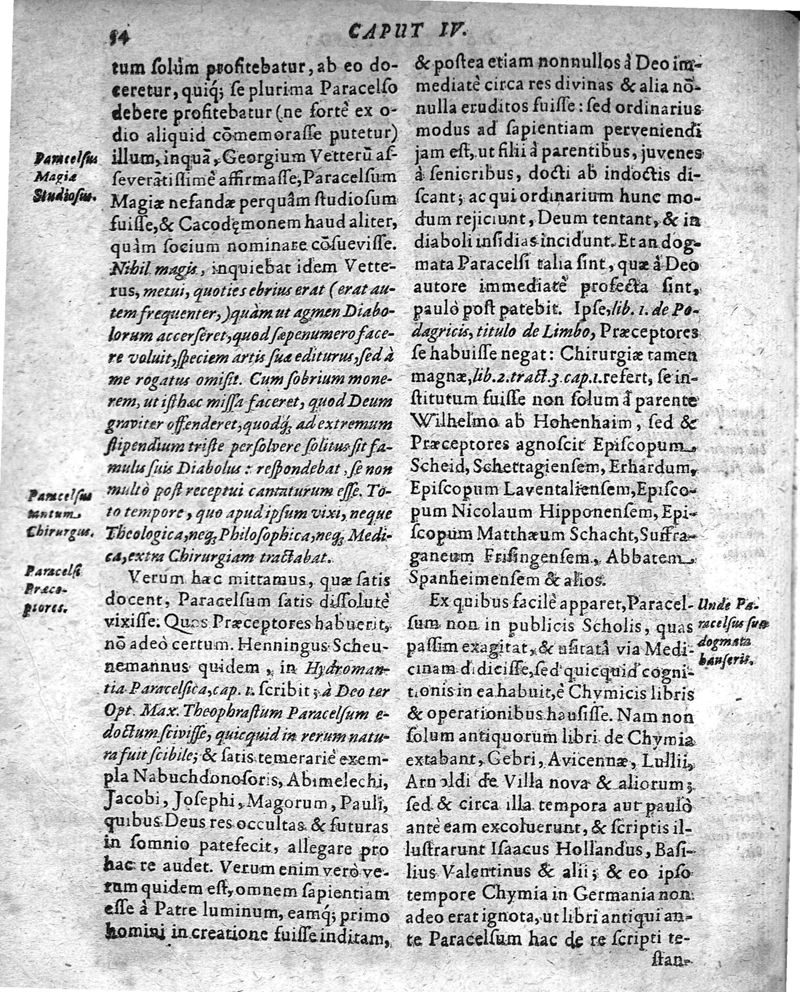 54
CAPUT IV.
tum ſolùm profitebatur, ab eo do-
ceretur, quiq́; ſe plurima Paracelſo
debere profitebatur (ne fortè ex o-
dio aliquid cõmemoraſſe putetur)
illum, inquã, Georgium Vetterũ aſ-
ſeverãtiſſimè affirmaſſe, Paracelſum
Magiæ nefandæ perquàm ſtudioſum
fuiſſe, & Cacodęmonem haud aliter,
quàm ſocium nominare cõſueviſſe.
Nihil magis, inquiebat idem Vette-
rus, metui, quoties ebrius erat (erat au-
tem frequenter,) quàm ut agmen Diabo-
lorum accerſeret, quod ſæpenumero face-
re voluit, ſpeciem artis ſuæ editurus, ſed à
me rogatus omiſit. Cum ſobrium mone-
rem, ut iſthæc miſſa faceret, quod Deum
graviter offenderet, quodq́; ad extremum
ſtipendium triſte perſolvere ſolitus ſit fa-
mulis ſuis Diabolus: reſpondebat, ſe non
multò poſt receptui cantaturum eſſe. To-
to tempore, quo apud ipſum vixi, neque
Theologica, neq; Philoſophica, neq; Medi-
ca, extra Chirurgiam tractabat.
Verum hæc mittamus, quæ ſatis
docent, Paracelſum ſatis diſſolutè
vixiſſe. Quos Præceptores habuerit,
nõ adeò certum. Henningus Scheu-
nemannus quidem, in Hydroman-
tia Paracelſica, cap. 1. ſcribit; à Deo ter
Opt. Max. Theophraſtum Paracelſum e-
doctum ſciviſſe, quicquid in rerum natu-
ra fuit ſcibile; & ſatis temerariè exem-
pla Nabuchdonoſoris, Abimelechi,
Jacobi, Joſephi, Magorum, Pauli,
quibus Deus res occultas & futuras
in ſomnio patefecit, allegare pro
hac re audet. Verum enim verò ve-
rum quidem eſt, omnem ſapientiam
eſſe à Patre luminum, eamq́; primo
homini in creatione fuiſſe inditam,
Paracelſus
Magiæ
Studioſus.
Paracelſus
tantum
Chirurgus.
Paracelſi
Præce-
ptores.
& poſtea etiam nonnullos à Deo im-
mediatè circa res divinas & alia nõ-
nulla eruditos fuiſſe: ſed ordinarius
modus ad ſapientiam perveniendi
jam eſt, ut filii à parentibus, juvenes
à ſenioribus, docti ab indoctis di-
ſcant; ac qui ordinarium hunc mo-
dum rejiciunt, Deum tentant, & in
diaboli inſidias incidunt. Et an dog-
mata Paracelſi talia ſint, quæ à Deo
autore immediatè profecta ſint,
paulò poſt patebit. Ipſe, lib. 1. de Po-
dagricis, titulo de Limbo, Præceptores
ſe habuiſſe negat: Chirurgiæ tamen
magnæ, lib. 2. tract. 3. cap. 1. refert, ſe in-
ſtitutum fuiſſe non ſolum à parente
Wilhelmo ab Hohenhaim, ſed &
Præceptores agnoſcit Epiſcopum
Scheid, Schettagienſem, Erhardum,
Epiſcopum Laventalienſem, Epiſco-
pum Nicolaum Hipponenſem, Epi-
ſcopum Matthæum Schacht, Suffra-
ganeum Friſingenſem, Abbatem
Spanheimenſem & alios.
Ex quibus facilè apparet, Paracel-
ſum non in publicis Scholis, quas
paſſim exagitat, & uſitatâ via Medi-
cinam didiciſſe, ſed quicquid cogni-
tionis in ea habuit, è Chymicis libris
& operationibus hauſiſſe. Nam non
ſolum antiquorum libri de Chymia
extabant, Gebri, Avicennæ, Lullii,
Arnoldi de Villa nova & aliorum;
ſed & circa illa tempora aut paulò
antè eam excoluerunt, & ſcriptis il-
luſtrarunt Iſaacus Hollandus, Baſi-
lius Valentinus & alii; & eo ipſo
tempore Chymia in Germania non
adeo erat ignota, ut libri antiqui an-
te Paracelſum hac de re ſcripti te-
ſtan-
Unde Pa-
racelſus ſua
dogmata
hauſerit.